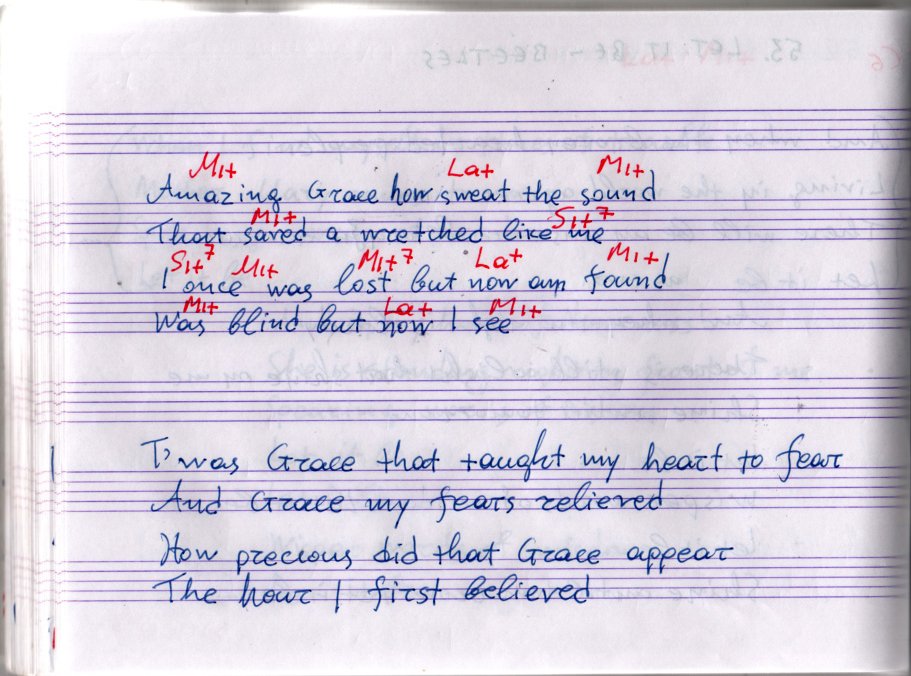 Mi+ La+ Mi+
Amazing Grace how sweat the sound
Mi+ Si+7
That saved a wretched like me
Si+7 Mi+ Mi+7 La+ Mi+
I once was lost but now am found
Mi+ La+ Mi+
Was blind but now I see
T'was Grace that taught my heart to fear
And Grace my fears relieved
How precious did that Grace appear
The hour I first believed